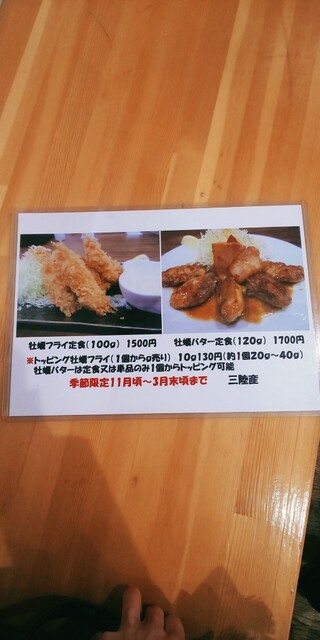 牡蠣フライ定食(100g) 1500円
牡蠣バター定食(120g) 1700円
※トッピング牡蠣フライ(1個からg売り) 10g130円(約1個20g～40g)
牡蠣バターは定食又は単品のみ1個からトッピング可能
季節限定11月頃～3月末頃まで 三陸産